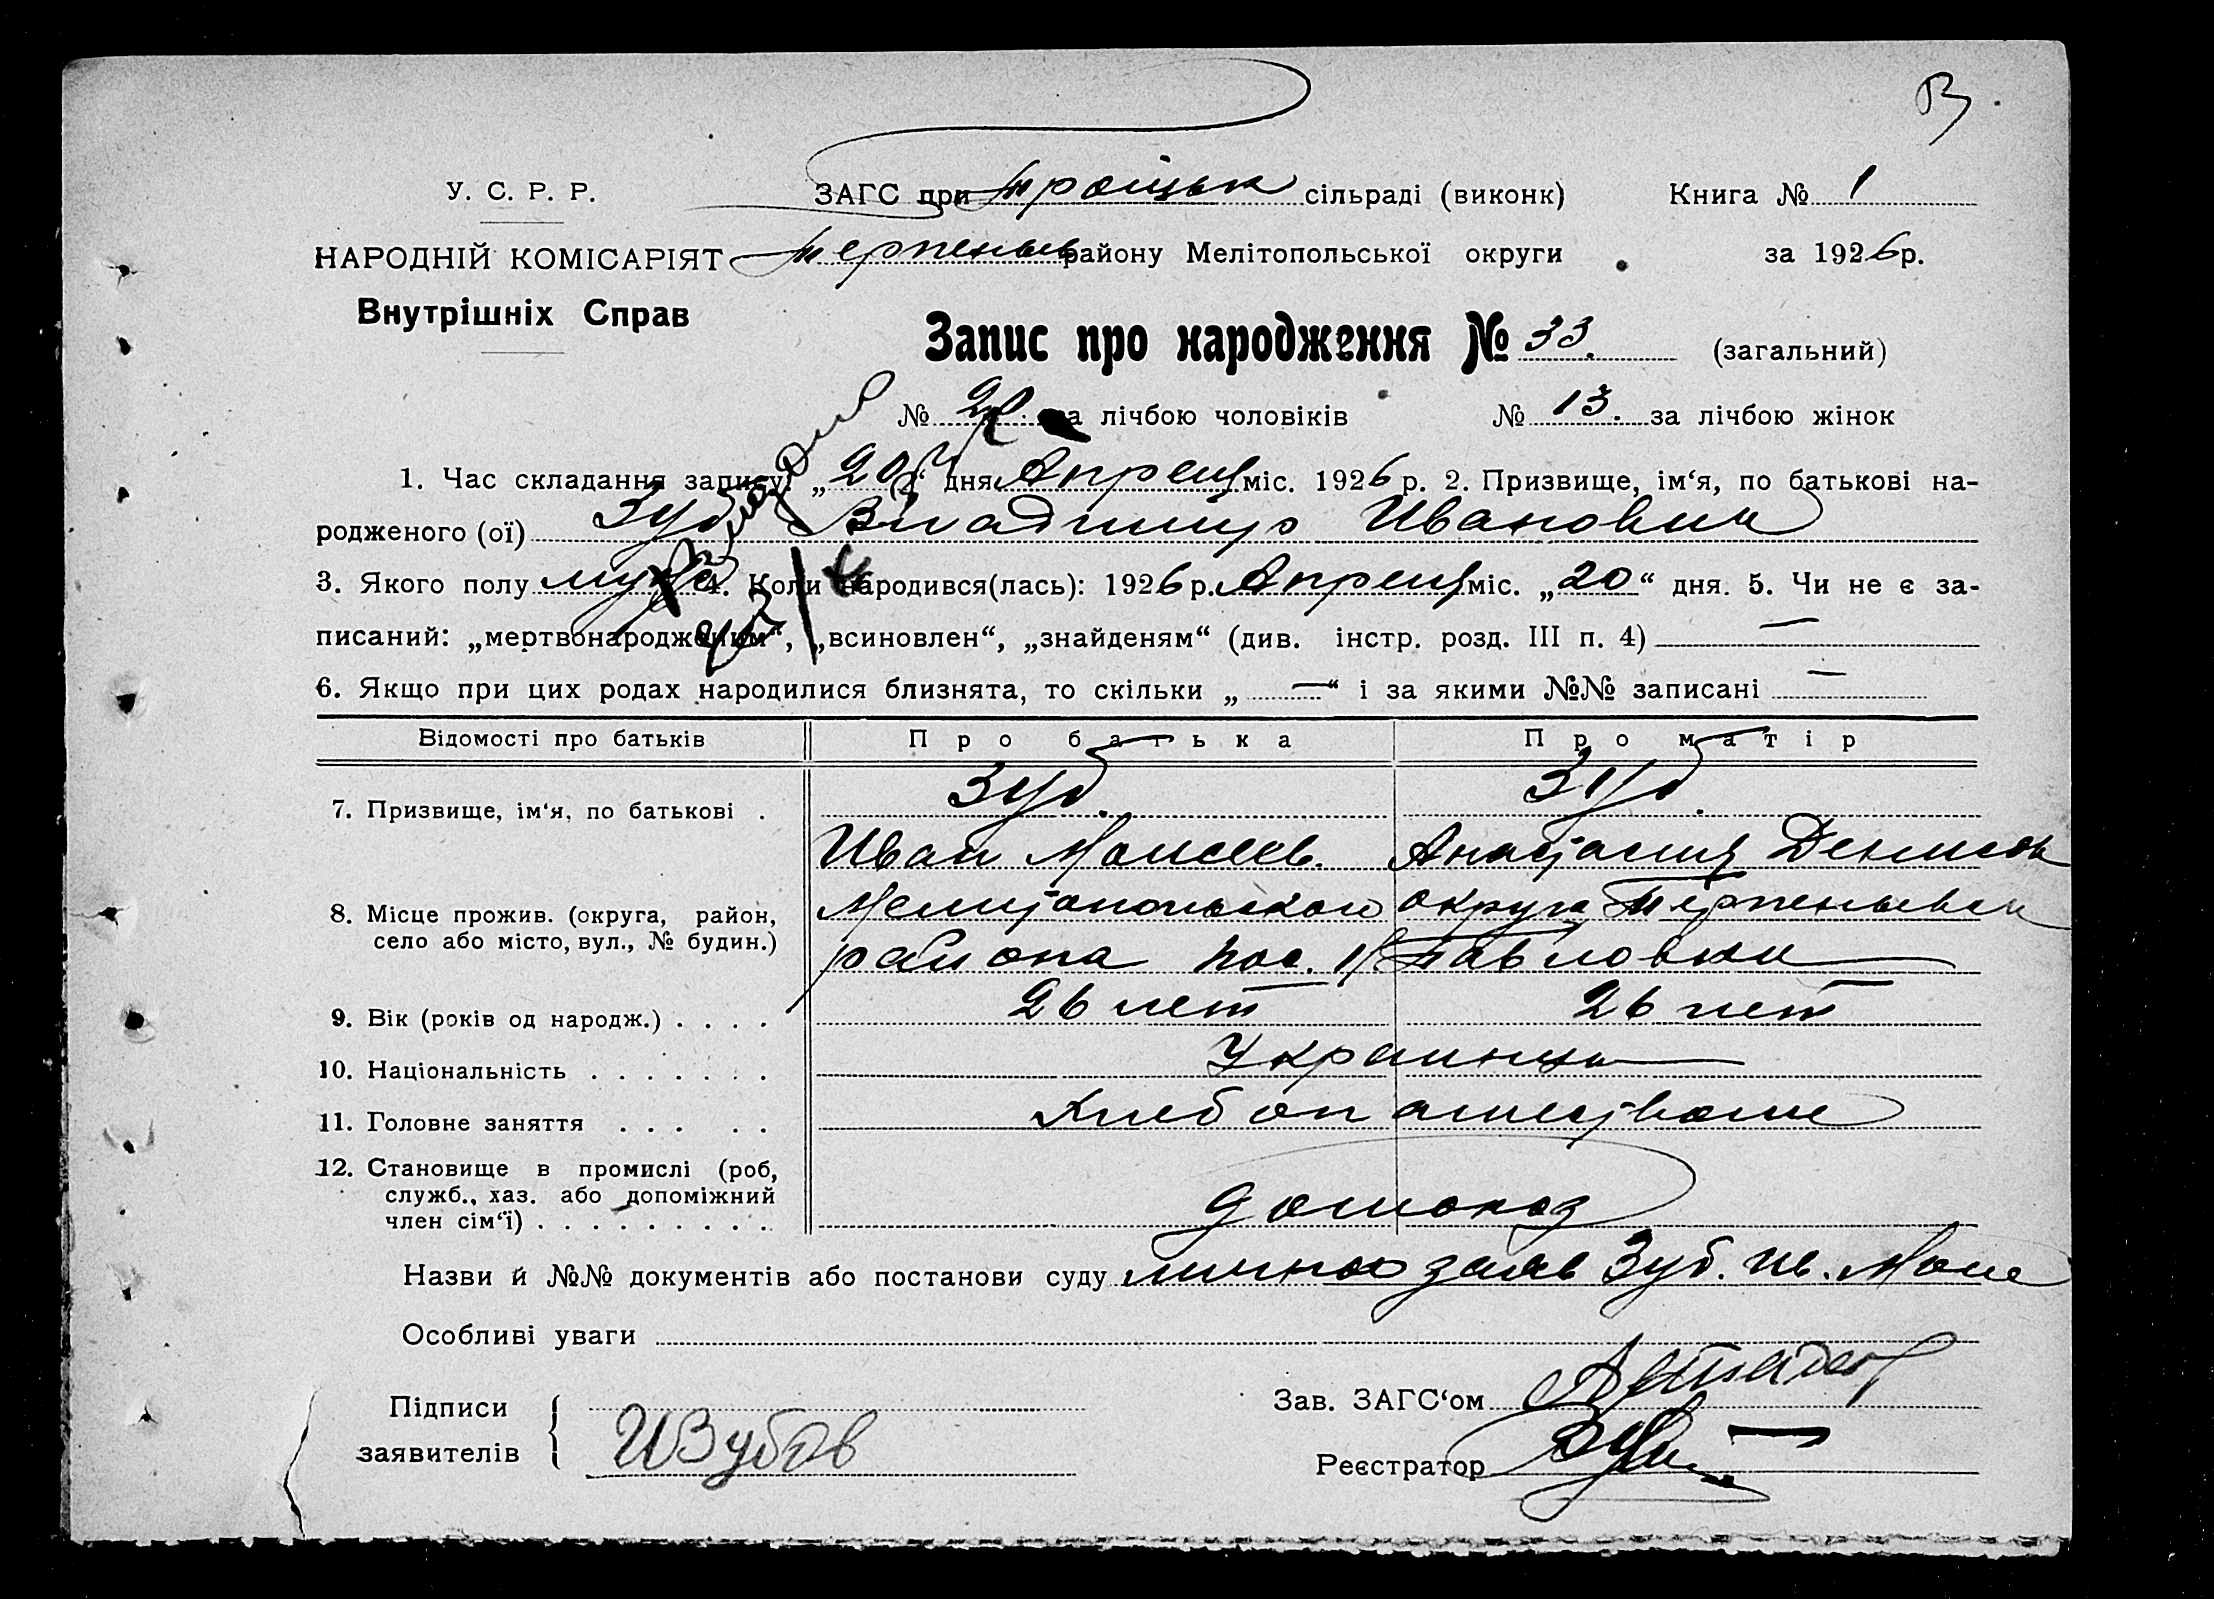 В
У. С. Р. Р. ЗАГС при Троицьк сільраді (виконк) Книга № 1
НАРОДНІЙ КОМІСАРІЯТ Терпеньев району Мелітопольської округи за 1926 р.
Внутрішніх Справ
Запис про народження № 33. (загальний)
№ 20 за лічбою чоловіків № 13. за лічбою жінок
1. Час складання запису: „20“ дня Апреля міс. 1926 р. 2. Призвище, ім‘я, по батькові на-
родженого (ої) Зуб Владимир Иванович
3. Якого полу муж 4. Коли народився(лась): 1926 р. Апреля міс. „20“ дня. 5. Чи не є за-
писаний: „мертвонародженим“, „всиновлен“, „знайденям“ (див. інстр. розд. III п. 4) —
6. Якщо при цих родах народилися близнята, то скільки „—“ і за якими №№ записані —
Відомості про батьків Про батька Про матір
Зуб. Зуб.
7. Призвище, ім‘я, по батькові .
Иван Моисеев. Анастасия Денисов
8. Місце прожив. (округа, район, село або місто, вул., № будин.) Мелитопольского округа Терпеньевск
района пос. Павловки
9. Вік (років од народж.) . . . . 26 лет 26 лет
10. Національність . . . . . . . Украинцы
11. Головне заняття . . . . . Хлебопашество
12. Становище в промислі (роб,
служб., хаз. або допоміжний
член сім‘ї) . . . . . . . . . .
Назви й №№ документів або постанови суду лично заяв Зуб. Ив. Моис
Особливі уваги
Підписи Зав. ЗАГС‘ом
заявителів ИЗубов Реєстратор